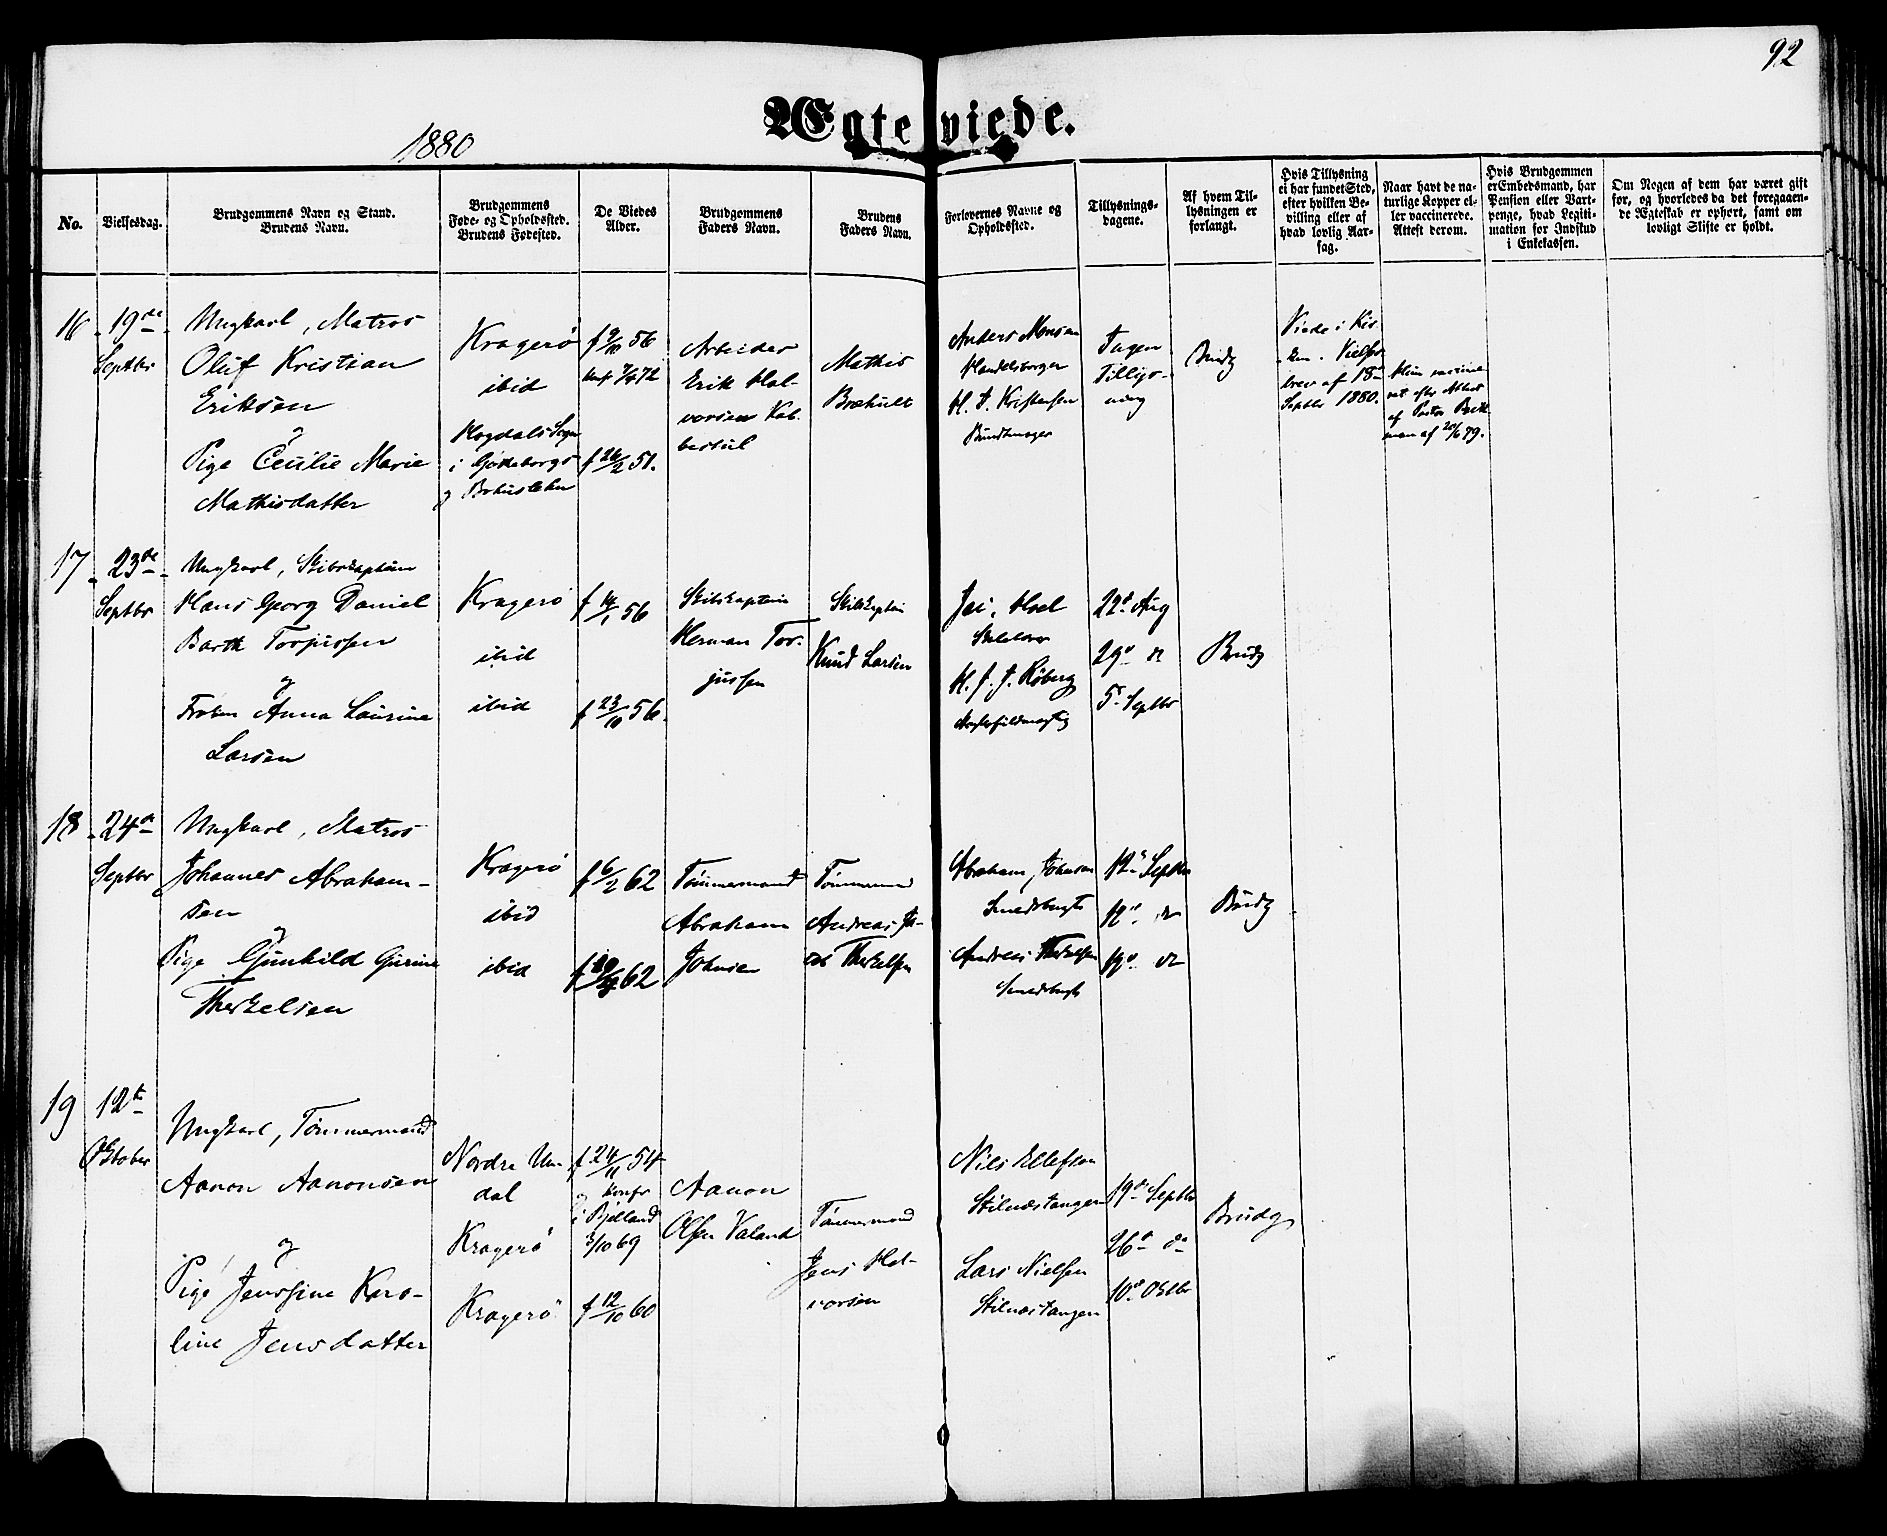 92
Ægteviede.
1880
No.
Vielsesdag.
Brudgommens Navn og Stand.
Brudens Navn.
Brudgommens
Føde- og Opholdssted.
Brudens Fødested.
De Viedes
Alder.
Brudgommens
Faders Navn.
Brudens
Faders Navn.
Forlovernes Navne og
Opholdssted.
Tillysnings-
dagene.
Af hvem Til-
lysningen er
forlangt.
Hvis Tillysning
ei har fundet Sted,
efter hvilken Be-
villing eller af
hvad lovlig Aar-
sag.
Naar havt de na-
turlige Kopper el-
ler vaccinerede.
Attest derom.
Hvis Brudgommen
er Embedsmand, har
Pension eller Vart-
penge, hvad Legiti-
mation for Indskud
i Enkekassen.
Om Nogen af dem har været gift
før, og hvorledes da det foregaaen-
de Ægteskab er ophørt, samt om
lovligt Skifte er holdt.
16
19de
Septbr
Ungkarl, Matros
Oluf Kristian
Eriksen
og
Pige Cecilie Marie
Mathisdatter
Kragerø
ibid
Hogdals Sogn
i Gøteborgs
og Bohuslehn
f 9/10 56
f 26/2 51.
Arbeider
Erik Hal-
vorsen Kal-
Mathis
Brækult
Anders Monsen
Handelsborger
H. T. Kristensen
Bundtmager
Ingen
Tillys-
ning
Brudg
Viede i Kir
ken. Vielses
brev af 18de
Septbr 1880.
Hun vaccine
ret efter Attest
af Pastor
af 20/6 79.
17
23de
Septbr
Ungkarl, Skibskaptein
Hans Georg Daniel
Barth Torjussen
og
Frøken Anna Laurine
Larsen
Kragerø
ibid
ibid
f 14/1 56
f 23/10 56.
Skibskaptein
Herman Tor-
jussen
Skibskaptein
Knud Larsen
Hoel
H. J. J. Röberg
22d Aug
29d do
5d Septbr
Brudg
18
24de
Septbr
Ungkarl, Matros
Johannes Abraham-
sen
og
Pige Gunhild Gurine
Therkelsen
Kragerø
ibid
ibid
f 6/2 62
62
Tømmermand
Abraham
Johnsen
Tømmermand
Andreas Ja-
cob Therkelsen
Abraham Johnsen
Smedsbugt
Andreas Therkelsen
Smedsbugt
12d Septbr
12d do
19d do
Brudg
19
12te
Oktober
Ungkarl, Tømmermand
Aanon Aanonsen
og
Pige Jenssine Karo-
line Jensdatter
Nordre Un-
dal
Kragerø
Kragerø
f 24/11 54
og konfr
i Bjelland
3/10 69
f 12/10 60
Aanon
Olsen Valand
Tømmermand
Jens Hal-
vorsen
Nils Ellefsen
Stilnæstangen
Lars Nielsen
Stilnæstangen
19d Septbr
26d do
10d Oktbr
Brudg